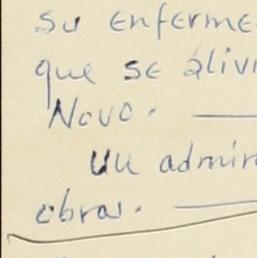 su enferme
que se alivi
Novo.
un admir
obras.